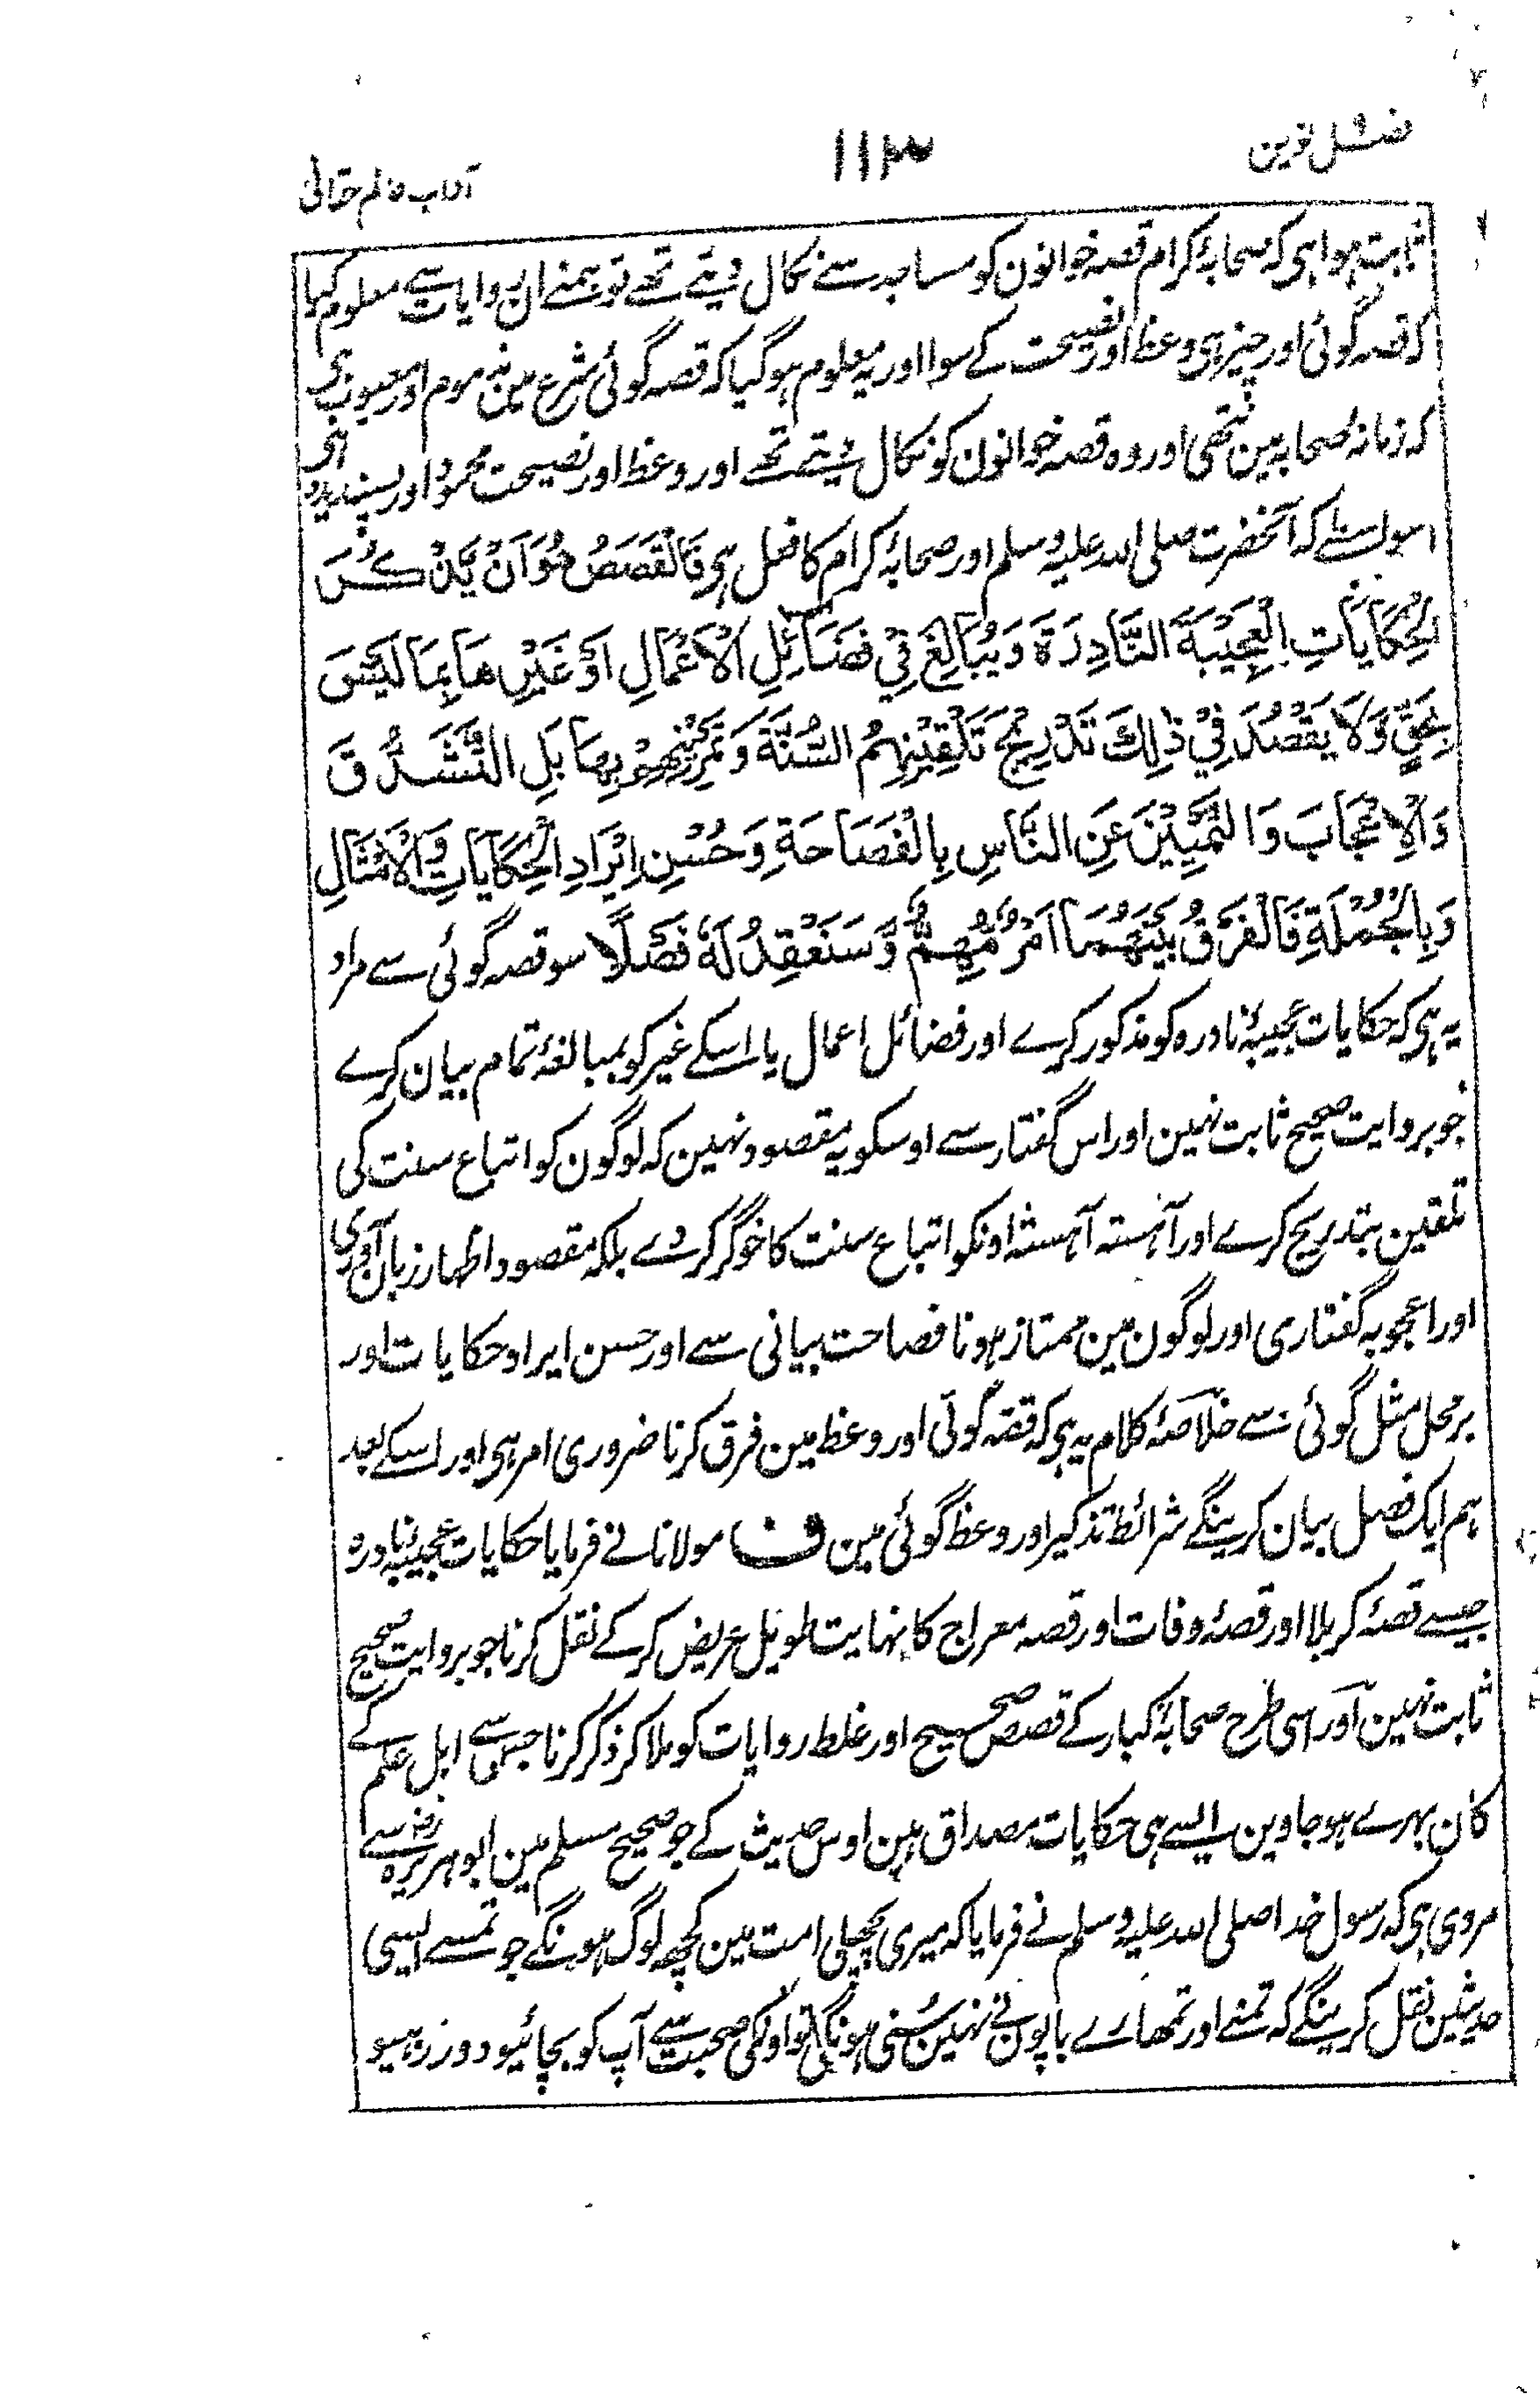 فصل نوین ۱۱۳ آداب عالم حقانی
ثابت ہوا ہی کہ صحابۂ کرام قصہ خوانون کو مساجد سے نکال دیتے تھے تو ہمنے ان روایات سے معلوم کیا
کہ قصہ گوئی اور چیز ہی وعظ اور نصیحت کے سوا اور یہ معلوم ہو گیا کہ قصہ گوئی شرع مین مذموم اور معیوب ہی
کہ زمانۂ صحابہ مین نتھی اور وہ قصہ خوانون کو نکال دیتے تھے اور وعظ اور نصیحت محمود اور پسندیدہ ہی
اسواسطے کہ آنحضرت صلی اللہ علیہ وسلم اور صحابۂ کرام کا فعل ہی فَالْقَصَصُ هُوَ اَنْ يَّذْكُرَ
الْحِكَايَاتِ الْعَجِيْبَةَ النَّادِرَةَ وَيُبَالِغَ فِيْ فَضَائِلِ الْاَعْمَالِ اَوْ غَيْرِهَا بِمَا لَيْسَ
بِحَقٍّ وَّلَا يَقْصُدَ فِيْ ذٰلِكَ تَدْرِيْجَ تَلْقِيْنِهِمُ السُّنَّةَ وَتَمْرِيْنِهِمْ بِهَا بَلِ التَّشَدُّقَ
وَالْاِعْجَابَ وَالتَّمَيُّزَ عَنِ النَّاسِ بِالْفَصَاحَةِ وَحُسْنِ اِيْرَادِ الْحِكَايَاتِ وَالْاَمْثَالِ
وَبِالْجُمْلَةِ فَالْفَرْقُ بَيْنَهُمَا اَمْرٌ مُّهِمٌّ وَّسَنَعْقِدُ لَهٗ فَصْلًا سو قصہ گوئی سے مراد
یہ ہی کہ حکایات عجیبۂ نادرہ کو مذکور کرے اور فضائل اعمال یا اسکے غیر کو بمبالغۂ تمام بیان کرے
جو بروایت صحیح ثابت نہین اور اس گفتار سے اوسکو یہ مقصود نہین کہ لوگون کو اتباع سنت کی
تلقین بتدریج کرے اور آہستہ آہستہ اونکو اتباع سنت کا خوگر کر دے بلکہ مقصود اظہار زبان آوری
اور اعجوبہ گفتاری اور لوگون مین ممتاز ہونا فصاحت بیانی سے اور حسن ایراد حکایات اور
برمحل مثل گوئی سے خلاصۂ کلام یہ ہی کہ قصہ گوئی اور وعظ مین فرق کرنا ضروری امر ہی اور اسکے بعد
ہم ایک فصل بیان کرینگے شرائط تذکیر اور وعظ گوئی مین ف مولانا نے فرمایا حکایات عجیبۂ نادرہ
جیسے قصۂ کربلا اور قصۂ وفات اور قصہ معراج کا نہایت طویل عریض کر کے نقل کرنا جو بروایت صحیح
ثابت نہین اور اسی طرح صحابۂ کبار کے قصص صحیح اور غلط روایات کو ملا کر ذکر کرنا جس سے اہل علم کے
کان بہرے ہو جاوین ایسے ہی حکایات مصداق ہین اوس حدیث کے جو صحیح مسلم مین ابو ہریرہ رض سے
مروی ہی کہ رسول خدا صلی اللہ علیہ وسلم نے فرمایا کہ میری پچھلی امت مین کچھ لوگ ہونگے جو تمسے ایسی
حدیثین نقل کرینگے کہ تمنے اور تمھارے باپون نے نہین سُنی ہونگی تو اونکی صحبت سے آپ کو بچائیو دور رہیو